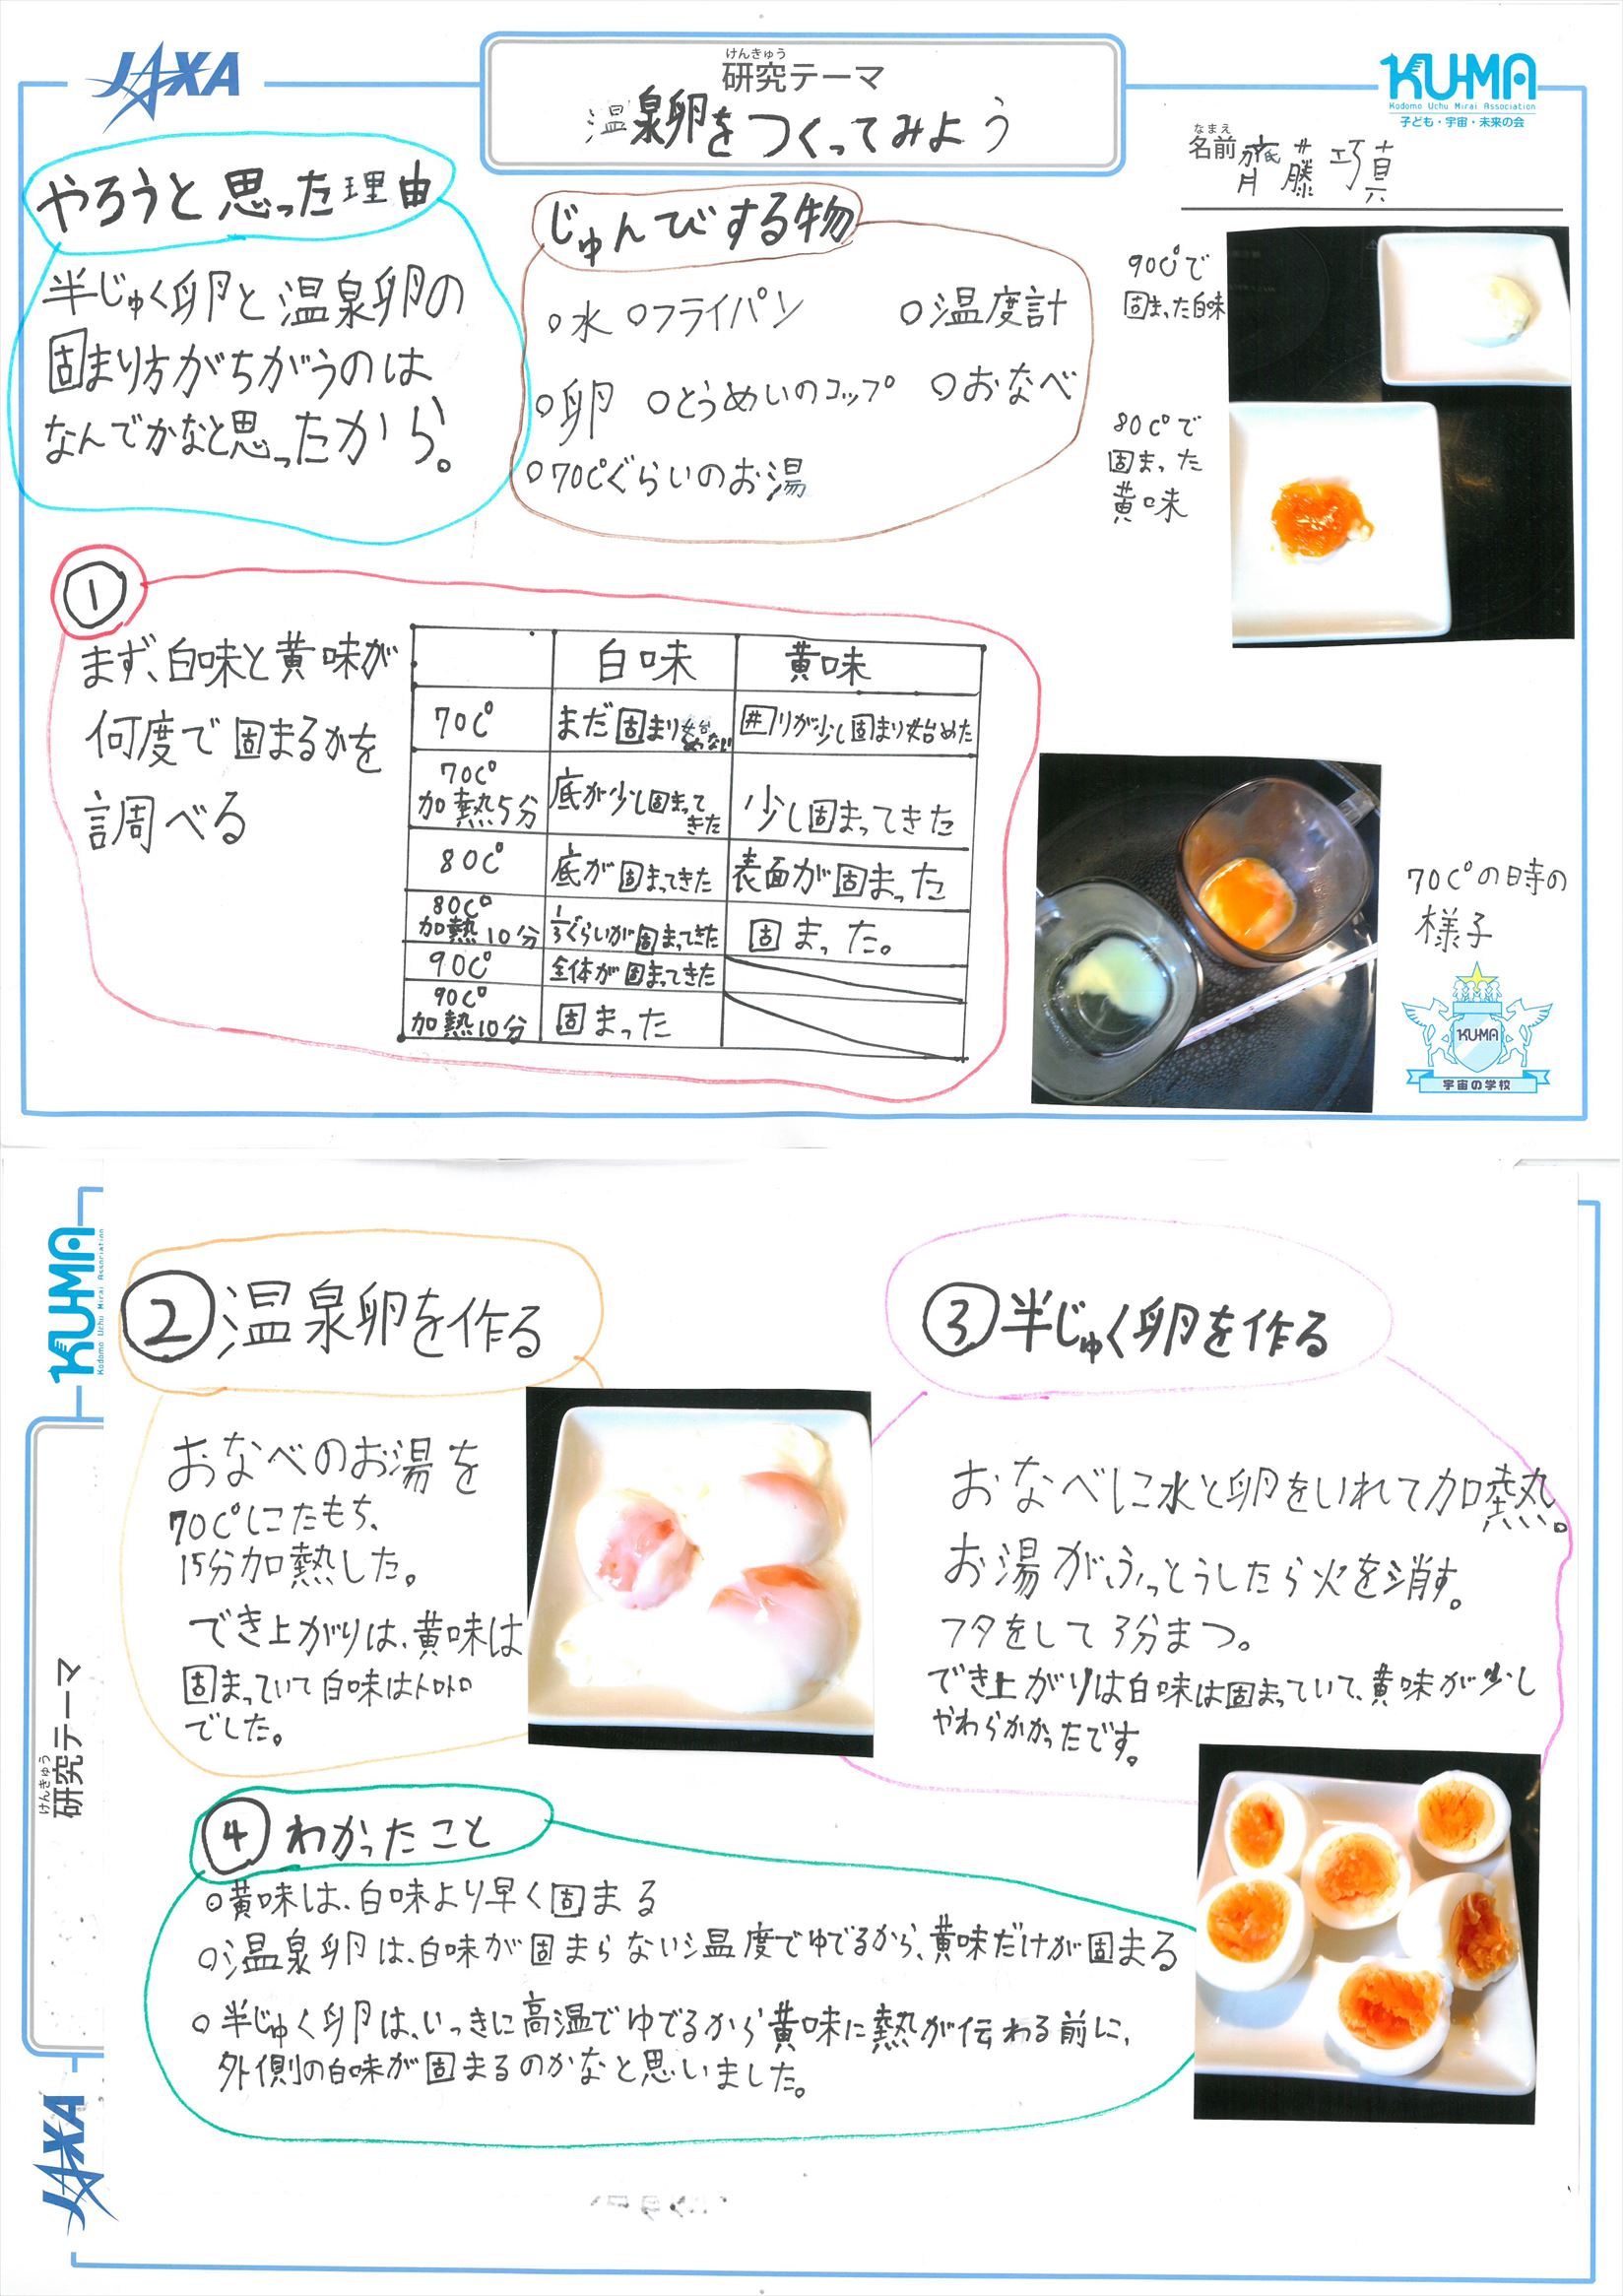 JAXA
けんきゅう
研究テーマ
温泉卵をつくってみよう
KU-MA
Kodomo Uchu Mirai Association
子ども・宇宙・未来の会
なまえ
名前 齊藤巧真
やろうと思った理由
半じゅく卵と温泉卵の
固まり方がちがうのは
なんでかなと思ったから。
じゅんびする物
○水 ○フライパン ○温度計
○卵 ○とうめいのコップ ○おなべ
○70C°ぐらいのお湯
90C°で
固まった白味
80C°で
固まった
黄味
①
まず、白味と黄味が
何度で固まるかを
調べる
白味 黄味
70C° まだ固まり始めない 井りが少し固まり始めた
70C°
加熱5分 底が少し固まって
きた 少し固まってきた
80C° 底が固まってきた 表面が固まった
80C°
加熱10分 1/3ぐらいが固まってきた 固まった。
90C° 全体が固まってきた
90C°
加熱10分 固まった
70C°の時の
様子
KU-MA
宇宙の学校
KU-MA
Kodomo Uchu Mirai Association
けんきゅう
研究テーマ
JAXA
②温泉卵を作る
おなべのお湯を
70C°にたもち、
15分加熱した。
でき上がりは、黄味は
固まっていて白味はトロトロ
でした。
③半じゅく卵を作る
おなべに水と卵をいれて加熱。
お湯がふっとうしたら火を消す。
フタをして3分まつ。
でき上がりは白味は固まっていて、黄味が少し
やわらかかったです。
④わかったこと
○黄味は、白味より早く固まる
○温泉卵は、白味が固まらない温度でゆでるから、黄味だけが固まる
○半じゅく卵は、いっきに高温でゆでるから黄味に熱が伝わる前に、
外側の白味が固まるのかなと思いました。